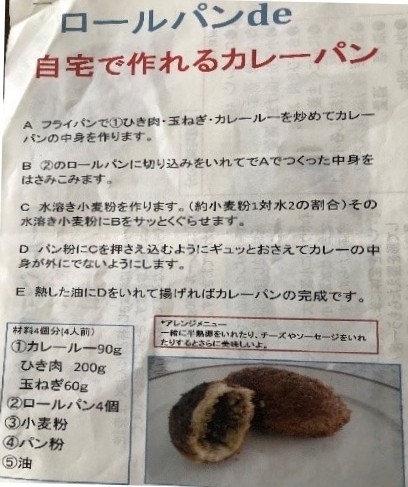 ロールパンde
自宅で作れるカレーパン
A フライパンで①ひき肉・玉ねぎ・カレールーを炒めてカレー
パンの中身を作ります。
B ②のロールパンに切り込みをいれてでAでつくった中身を
はさみこみます。
C 水溶き小麦粉を作ります。(約小麦粉1対水2の割合)その
水溶き小麦粉にBをサッとくぐらせます。
D パン粉にCを押さえ込むようにギュッとおさえてカレーの中
身が外にでないようにします。
E 熱した油にDをいれて揚げればカレーパンの完成です。
材料4個分(4人前)
①カレールー90g
ひき肉 200g
玉ねぎ60g
②ロールパン4個
③小麦粉
④パン粉
⑤油
*アレンジメニュー
一緒に半熟卵をいれたり、チーズやソーセージをいれ
たりするとさらに美味しいよ。